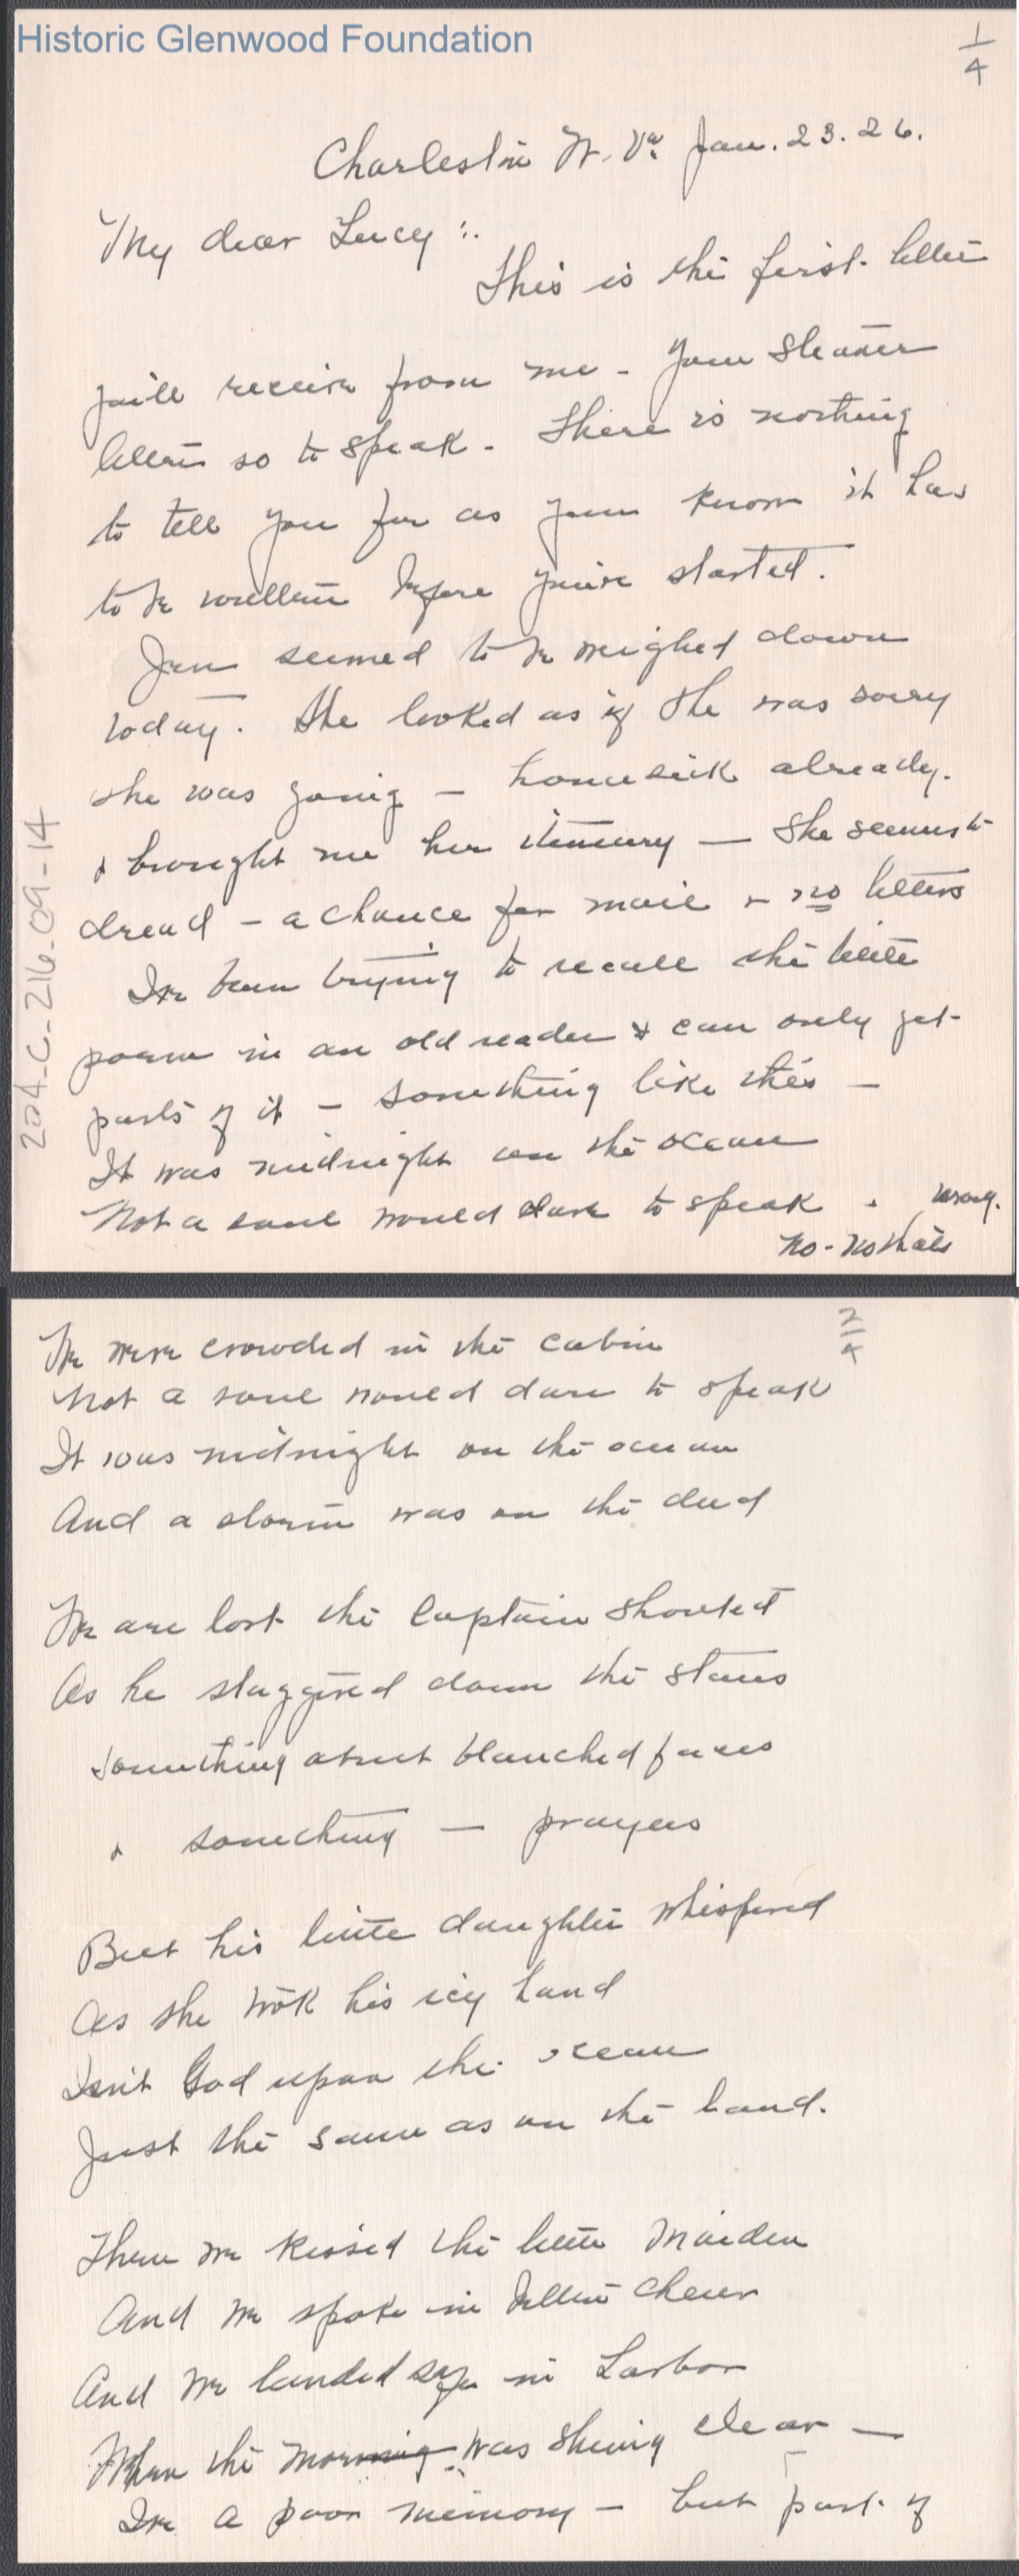 Historic Glenwood Foundation
1/4
Charleston W. Va Jan. 23. 26.
My dear Lucy :.
This is the first letter
you'll receive from me - Your Steamer
letter so to speak - There is nothing
to tell you for as you know it has
to be written before you've started.
Jen seemed to be weighed down
today. She looked as if she was sorry
she was going - homesick already.
& brought me her itinerary - She seems to
dread - a chance for mail & no letters
I've been trying to recall the little
poem in an old reader & can only get
parts of it - something like this -
It was midnight on the ocean
Not a soul would dare to speak . wrong.
no - no that's
204-C-216.09-14
2/4
We were crowded in the cabin
Not a soul would dare to speak
It was midnight on the ocean
And a storm was on the deep
We are lost the Captain shouted
As he staggered down the stairs
Something about blanched faces
& something - prayers
But his little daughter whispered
As she took his icy hand
Isn't God upon the ocean
Just the same as on the land.
Then we kissed the little maiden
And we spoke in better cheer
And we landed safe in harbor
When the morning was shining clear -
I've a poor memory - but part of